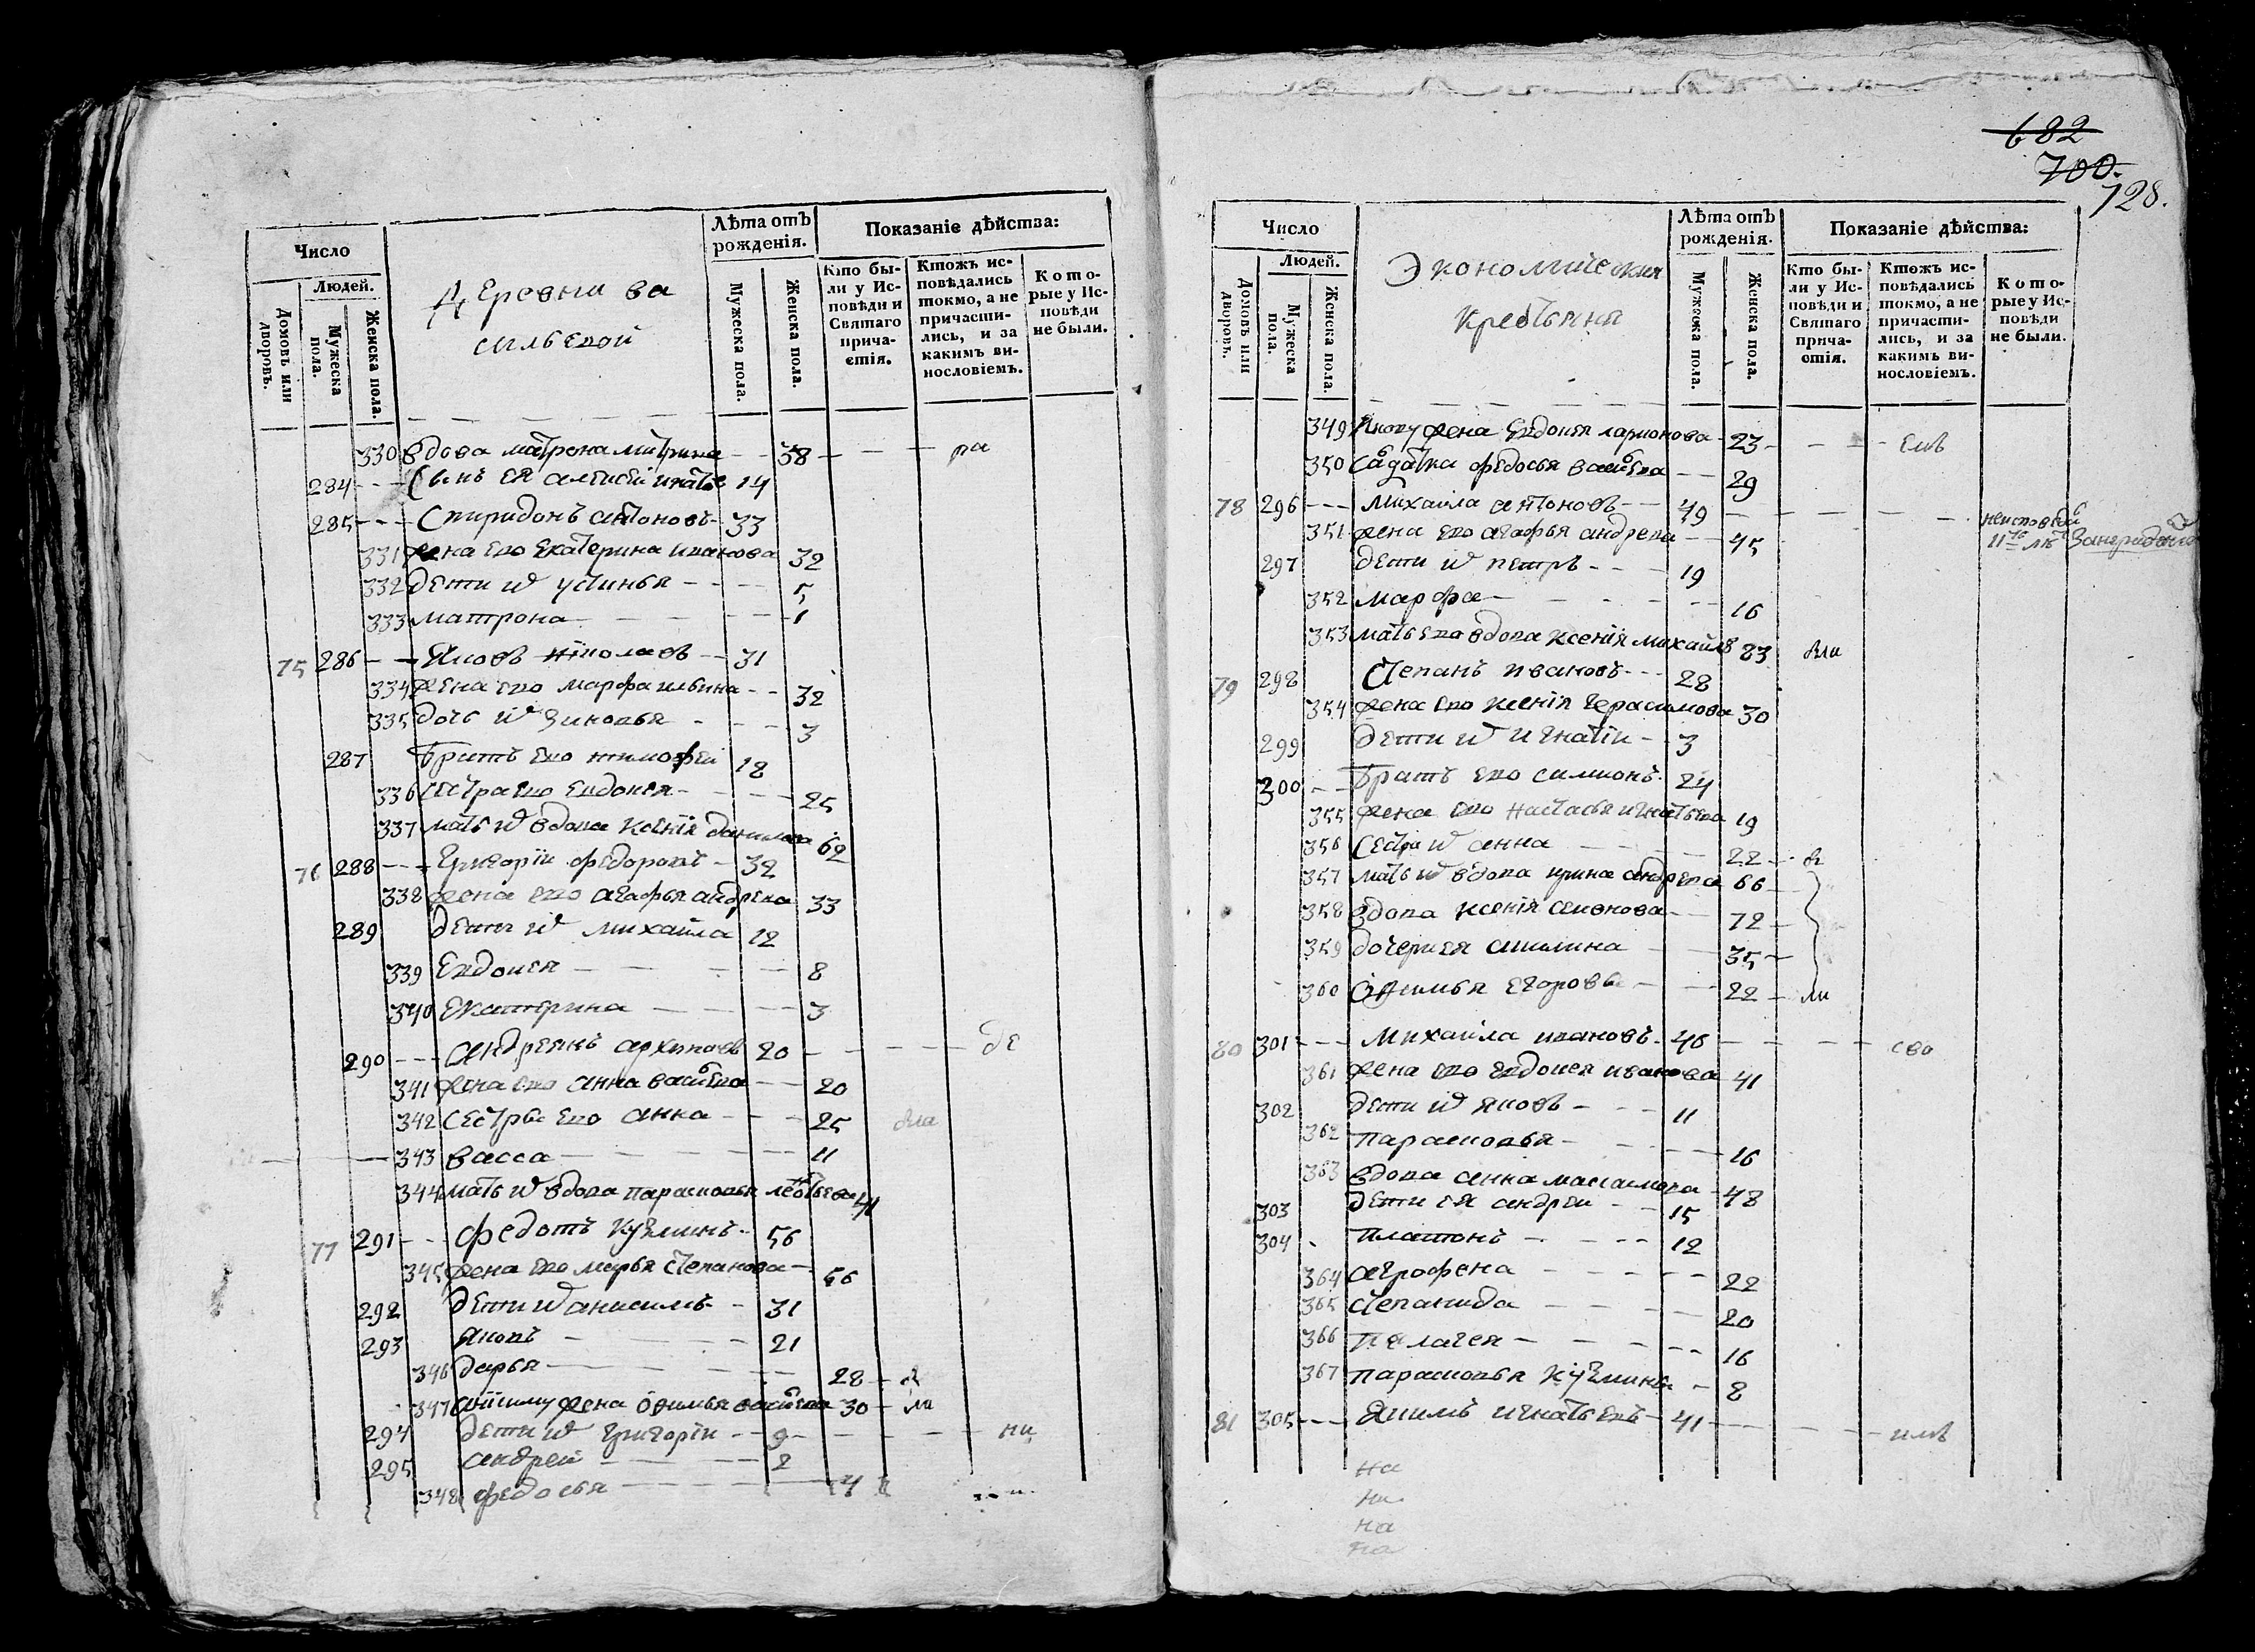 Число
Людей.
Домовъ или дворовъ.
Мужеска пола.
Женска пола.
Деревни ва
сильевой
Лѣта отъ рожденія.
Мужеска пола.
Женска пола.
Показаніе дѣйства:
Кто бы-
ли у Ис-
повѣди и
Святаго
прича-
стія.
Ктожъ ис-
повѣдались
токмо, а не
причасти-
лись, и за
какимъ ви-
нословіемъ.
Кото-
рые у Ис-
повѣди
не были.
330 вдова матрона 38 ра
284 Сынъ ея алексей игнатьев 14
285 Спиридонъ антоновъ 33
331 жена ево екатерина иванова 32
332 дети их устинья 5
333 матрона 1
75 286 Яковъ николаевъ 31
334 жена ево марфа ильина 32
335 дочь их зиновья 3
287 братъ ево тимофей 18
336 сестра ево евдокея 25
337 мать их вдова ксения данилова 62
76 288 григории федоровъ 32
338 жена ево агафья андрева 33
289 дети их михаила 12
339 Евдокея 8
340 Екатерина 3
290 андреянъ архиповъ 20 де
341 жена ево анна василева 20
342 сестры ево анна 25 вла
343 васса 11
344 мать их вдова парасковья леотьева 41
77 291 федотъ кузминъ 56
345 жена ево марья степанова 56
292 дети их анисимъ 31
293 яковъ 21
346 дарья 28
347 жена офимья василева 30 ла
294 дети их григории 9 ни
295 андрей 2
348 федосья 4
682
700.
728.
Число
Людей.
Домовъ или дворовъ.
Мужеска пола.
Женска пола.
Экономическия
крестьяня
Лѣта отъ рожденія.
Мужеска пола.
Женска пола.
Показаніе дѣйства:
Кто бы-
ли у Ис-
повѣди и
Святаго
прича-
стія.
Ктожъ ис-
повѣдались
токмо, а не
причасти-
лись, и за
какимъ ви-
нословіемъ.
Кото-
рые у Ис-
повѣди
не были.
349 Якову жена Евдокея ларионова 23
350 салдатка федосья василева 29
78 296 Михаила антоновъ 49
351 жена ево агафья андрева 45
297 дети их петръ 19
352 марфа 16
353 мать ево вдова ксения михайлов 83 вла
79 298 Степанъ ивановъ 28
354 жена ево ксения герасимова 30
299 дети их игнатiи 3
300 братъ ево симионъ 24
355 жена ево настасья игнатьева 19
356 сестра их анна 22
357 мать их вдова ирина андрева 66
358 вдова ксения 72
359 дочери ея акилина 35
360 офимья егоровы 22 ли
80 301 Михаила ивановъ 46 сво
361 жена ево евдокея иванова 41
302 дети их яковъ 11
362 парасковья 16
363 вдова анна максимова 48
303 дети ея андреи 15
304 платонъ 12
364 аграфена 22
365 степанида 20
366 пелагея 16
367 парасковья кузмина 8
81 305 Якимъ игнатьевъ 41
на
ни
на